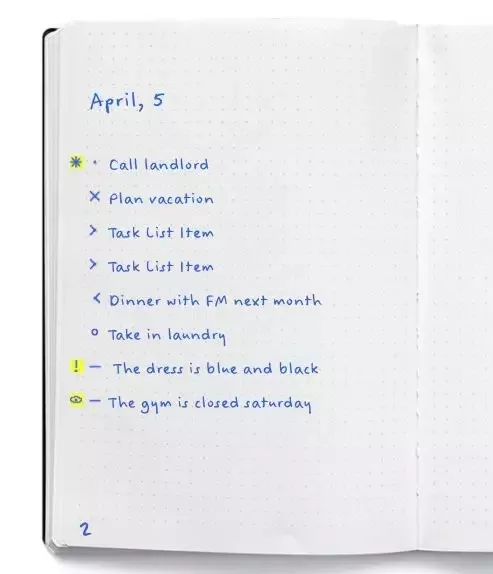 April, 5
* · Call landlord
× Plan vacation
> Task List Item
> Task List Item
< Dinner with FM next month
o Take in laundry
! – The dress is blue and black
– The gym is closed saturday
2